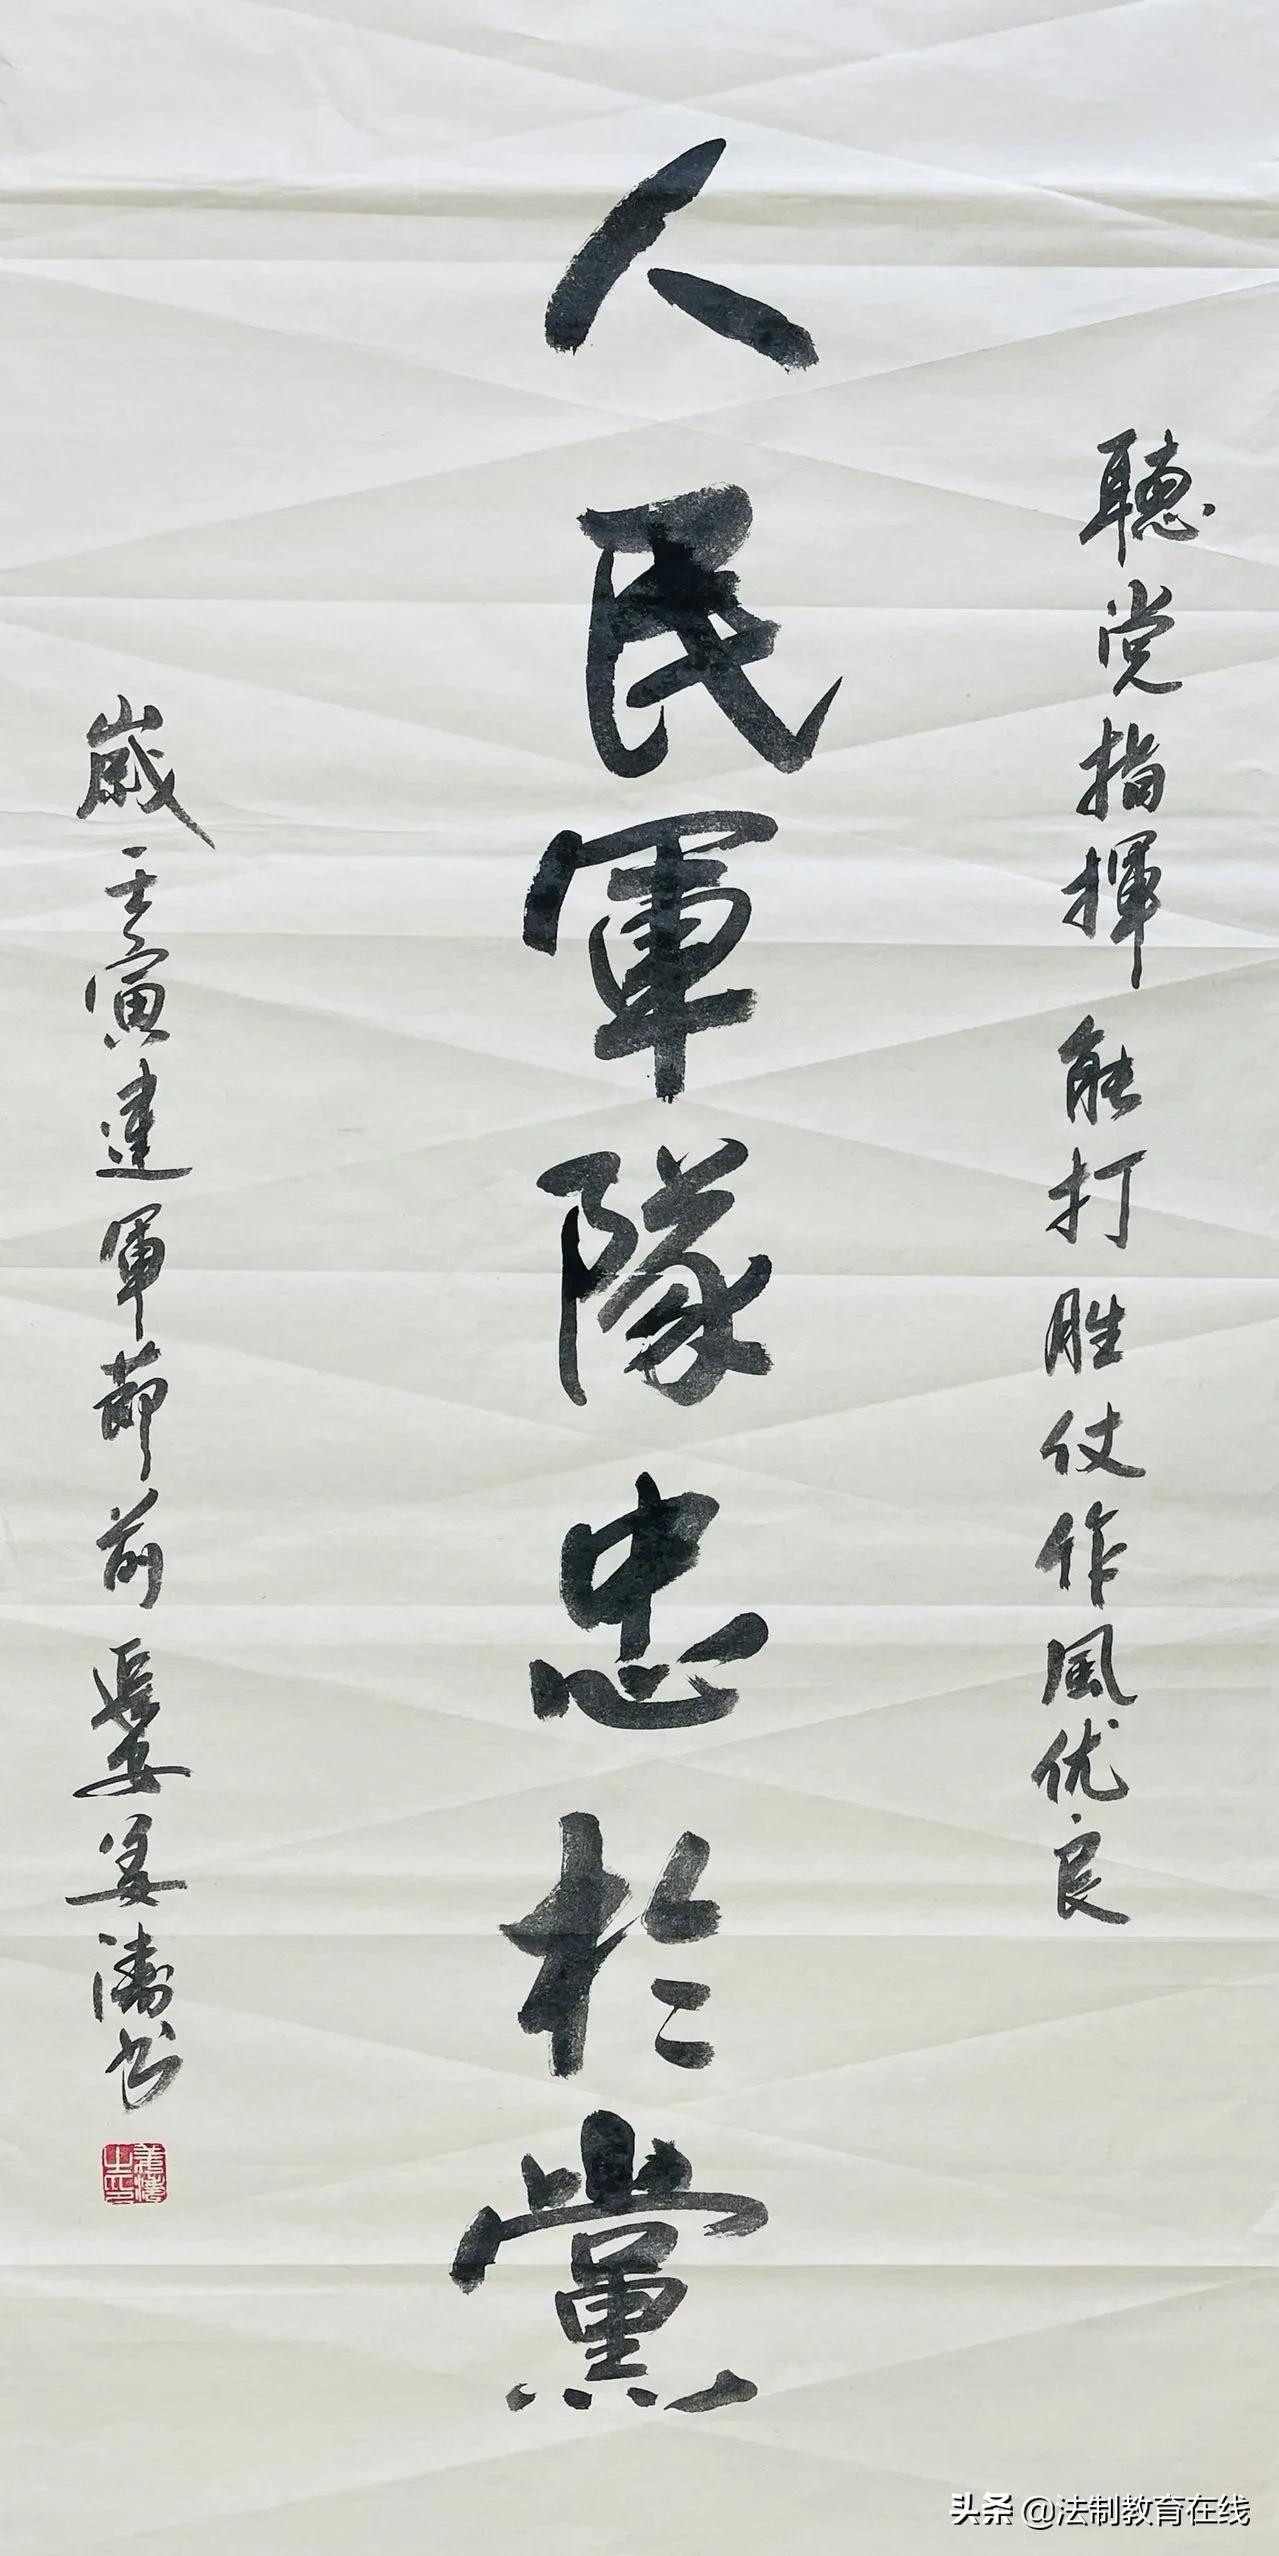 聽党指揮能打胜仗作風优良
人民軍隊忠於黨
歲壬寅建軍節前長安姜濤书
頭条 @法制教育在线